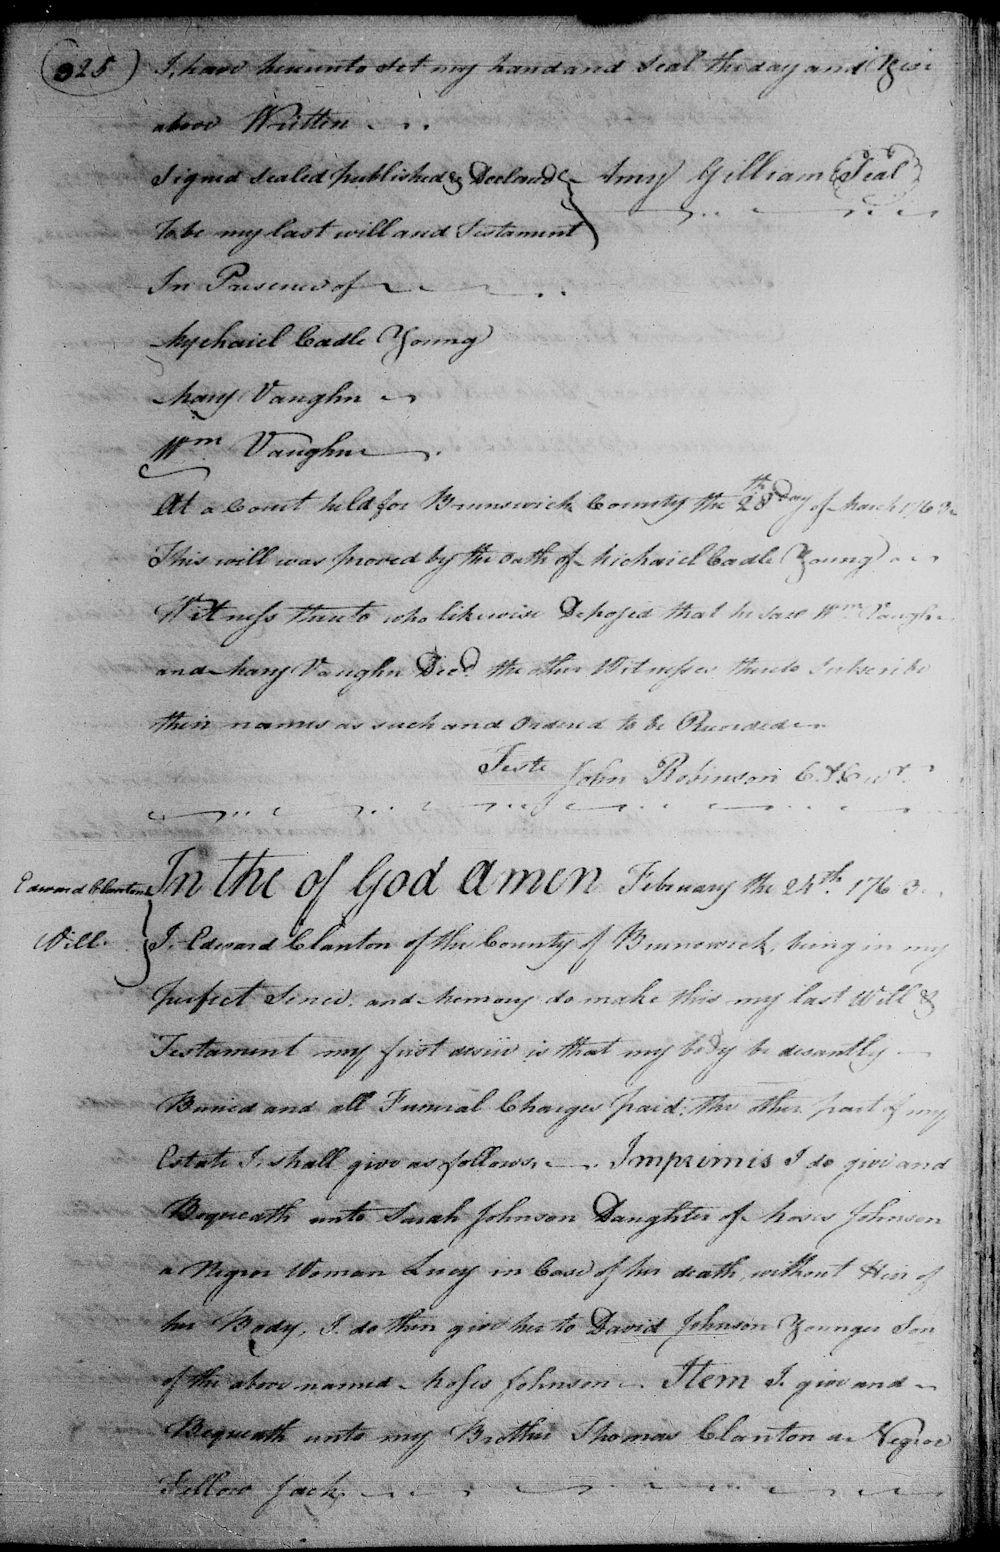 325)
I, have hereunto Set my hand and Seal the day and Year
above Written
Signed Sealed published & Declared } Amy Gilliam (Seal)
To be my last will and Testament
In Presence of
Mychaiel Cadle Young
Mary Vaughn
Wm Vaughn
At a Court held for Brunswick County the 28th Day of March 1763
This will was proved by the Oath of Michaiel Cadle Young a
Witness thereto who likewise Deposed that he saw Wm Vaughn
and Mary Vaughn Decd. the other Witnesses thereto Subscribe
their names as such and Ordered to be Recorded
Teste John Robinson C. Cur.
Edward Clantons
Will.
In the of God Amen February the 24th. 1763.
I, Edward Clanton of the County of Brunswick, being in my
perfect Sences. and Memory do make this my last Will &
Testament my first desire is that my body be desantly
Buried and all Funeral Charges paid. the other part of my
Estate I, shall give as follows, Imprimis I do give and
Bequeath unto Sarah Johnson Daughter of Moses Johnson
a Negroe Woman Lucy in Case of her death, without Heir of
her Body, I. do then give her to David Johnson Younger Son
of the above named Moses Johnson Item I. give and
Bequeath unto my Brother Thomas Clanton a Negroe
Fellow Jack